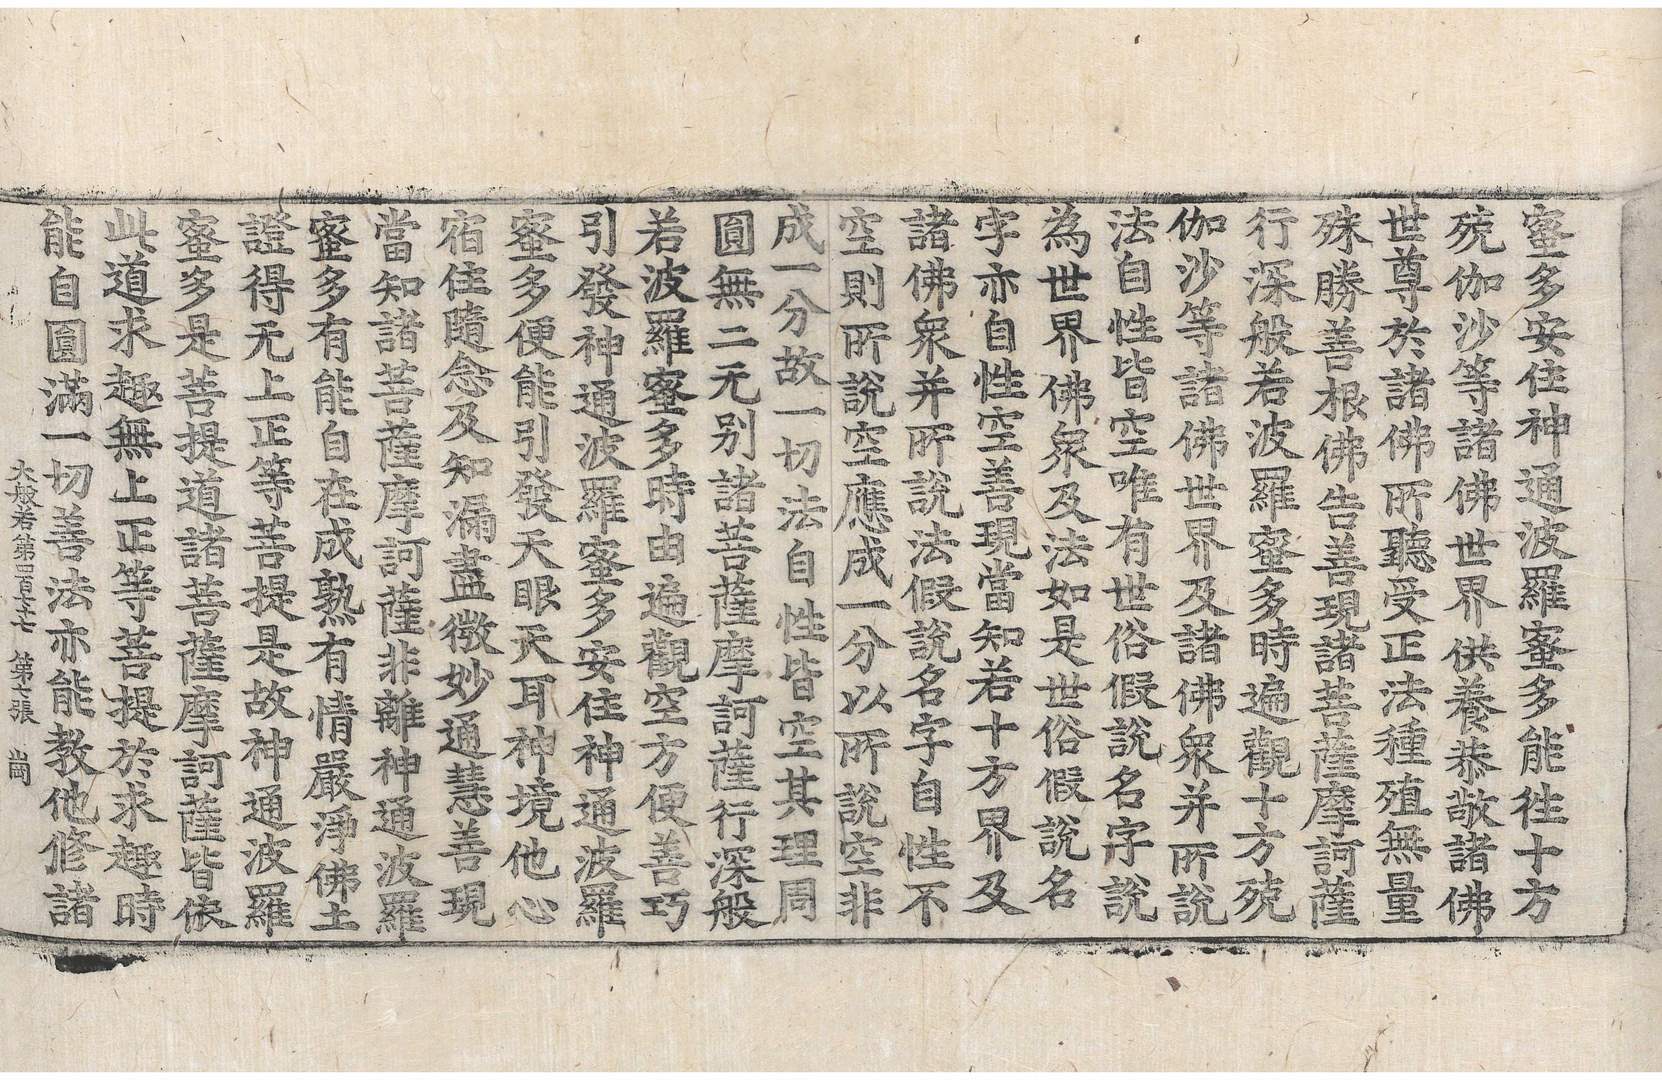 蜜多安住神通波羅蜜多能徃十方
殑伽沙等諸佛世界供養恭敬諸佛
世尊於諸佛所聽受正法種殖無量
殊勝善根佛告善現諸菩薩摩訶薩
行深般若波羅蜜多時遍觀十方殑
伽沙等諸佛世界及諸佛衆并所說
法自性皆空唯有世俗假說名字說
為世界佛衆及法如是世俗假說名
字亦自性空善現當知若十方界及
諸佛衆并所說法假說名字自性不
空則所說空應成一分以所說空非
成一分故一切法自性皆空其理周
圓無二无別諸菩薩摩訶薩行深般
若波羅蜜多時由遍觀空方便善巧
引發神通波羅蜜多安住神通波羅
蜜多便能引發天眼天耳神境他心
宿住隨念及知漏盡微妙通慧善現
當知諸菩薩摩訶薩非離神通波羅
蜜多有能自在成熟有情嚴淨佛土
證得无上正等菩提是故神通波羅
蜜多是菩提道諸菩薩摩訶薩皆依
此道求趣無上正等菩提於求趣時
能自圓滿一切善法亦能教他修諸
大般若第四百七十七 第七張 崗